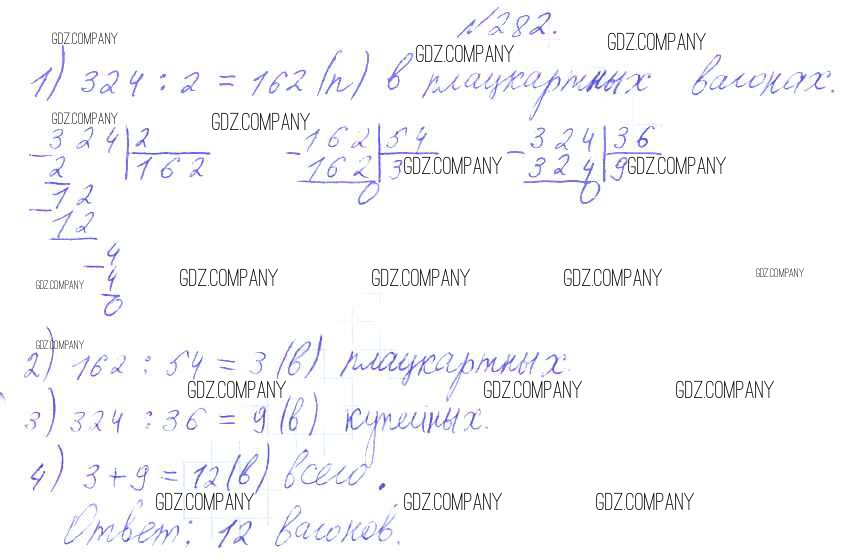 №282.
GDZ.COMPANY GDZ.COMPANY GDZ.COMPANY
1) 324 : 2 = 162 (п) в плацкартных вагонах.
GDZ.COMPANY GDZ.COMPANY
– 324 | 2 – 162 | 54 – 324 | 36
2 162 162 3 GDZ.COMPANY 324 9 GDZ.COMPANY
– 12 0 0
12
– 4
GDZ.COMPANY 4 GDZ.COMPANY GDZ.COMPANY GDZ.COMPANY GDZ.COMPANY
0
GDZ.COMPANY
2) 162 : 54 = 3 (в) плацкартных.
GDZ.COMPANY GDZ.COMPANY GDZ.COMPANY
3) 324 : 36 = 9 (в) купейных.
4) 3 + 9 = 12 (в) всего.
GDZ.COMPANY GDZ.COMPANY GDZ.COMPANY
Ответ: 12 вагонов.